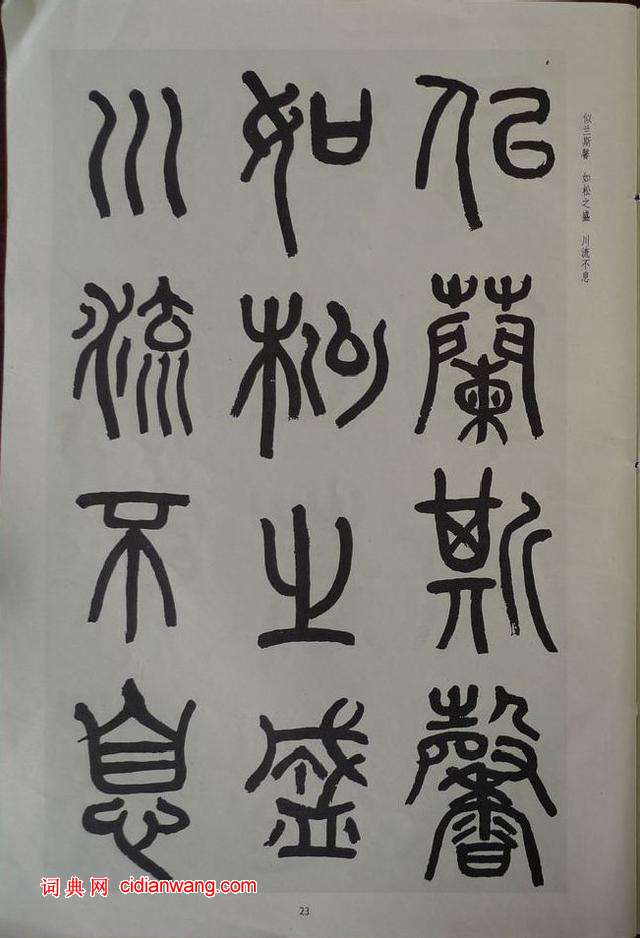 似蘭斯馨
如松之盛
川流不息
似兰斯馨 如松之盛 川流不息
词典网 cidianwang.com
23